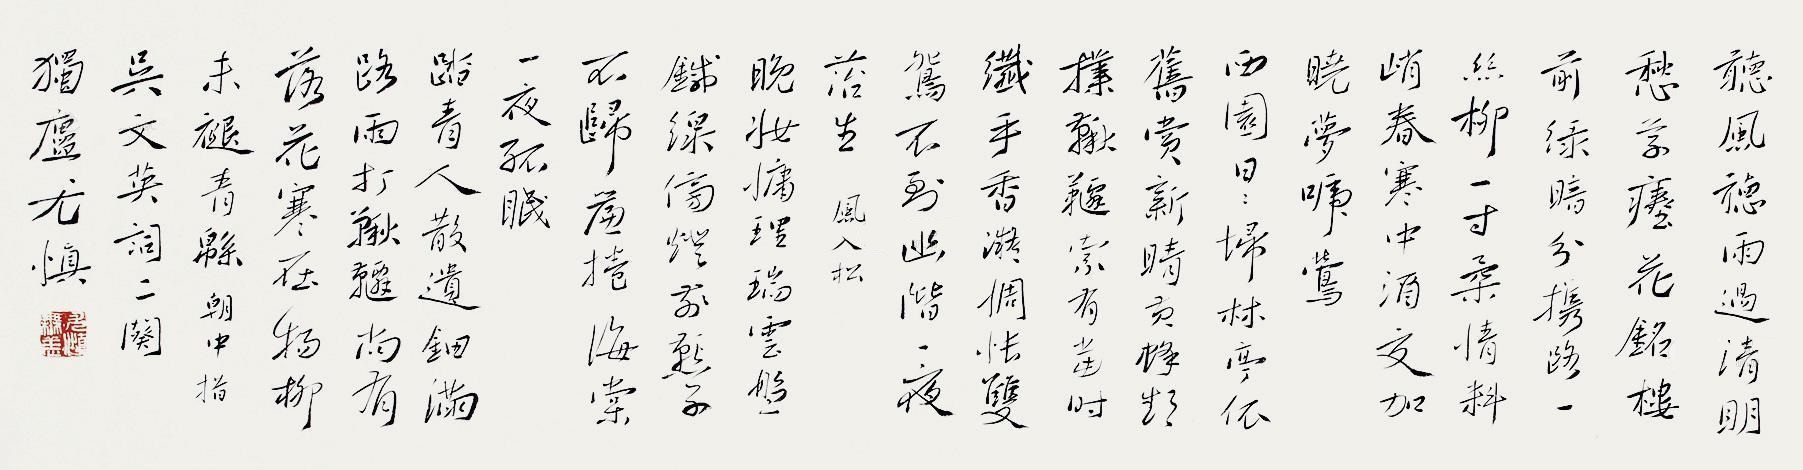 聽風聽雨過清明
愁草瘞花銘樓
前綠暗分攜路一
絲柳一寸柔情料
峭春寒中酒交加
曉夢啼鶯
西園日日掃林亭依
舊賞新晴黃蜂頻
撲鞦韆索有當時
纖手香凝惆悵雙
鴛不到幽階一夜
苔生 風入松
晚妝慵理瑞雲盤
鍼線傍燈前燕子
不歸簾捲海棠
一夜孤眠
踏青人散遺鈿滿
路雨打鞦韆尚有
落花寒在楊柳
未褪青綿 朝中措
吳文英詞二闋
獨廬尤慎